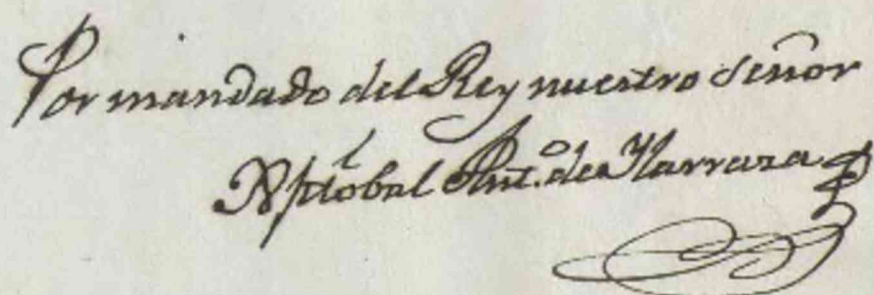 Por mandado del Rey nuestro Señor
Xptobal Ant.º de Ilarraza